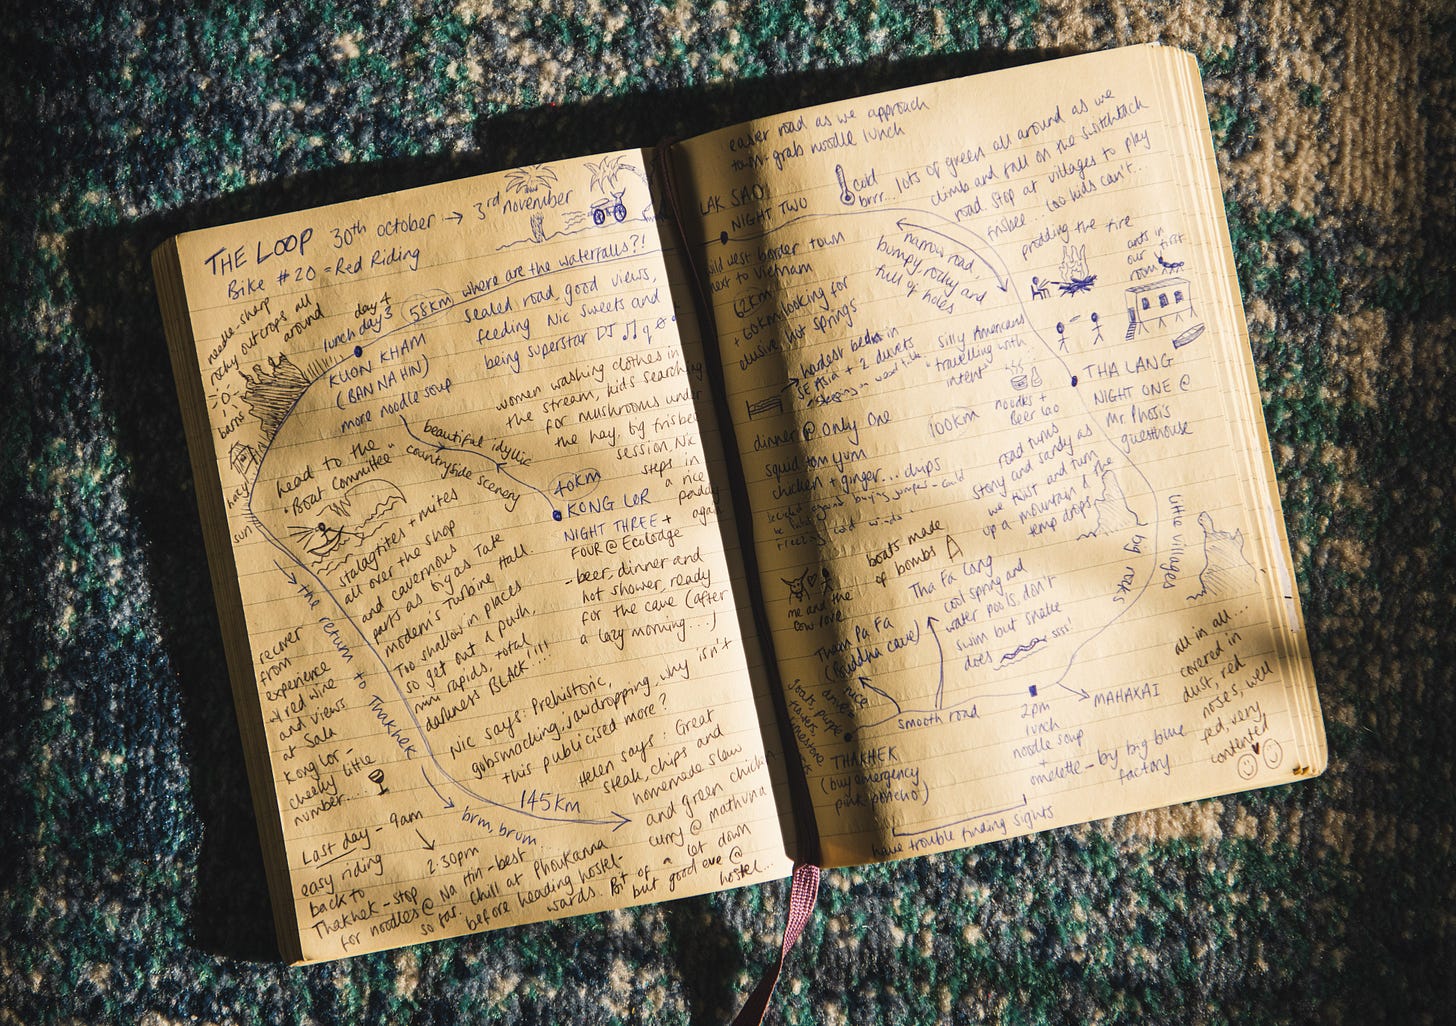 THE LOOP 30th october → 3rd november
Bike #20 = Red Riding
needle-sharp
rocky outcrops all
around
day 4
lunch day 3
58km
where are the waterfalls?!
sealed road, good views,
feeding Nic sweets and
being superstar DJ
KUON KHAM
(BAN NA HIN)
more noodle soup
barns
hazy
sun
women washing clothes in
the stream, kids searching
for mushrooms under
the hay, big frisbee
session, Nic
steps in
a rice
paddy
again
beautiful idyllic
countryside scenery
40km
KONG LOR
NIGHT THREE +
FOUR @ Ecolodge
- beer, dinner and
hot shower, ready
for the cave (after
a lazy morning...)
head to the
"Boat Committee"
stalagtites + mites
all over the shop
and cavernous
parts as big as Tate
modern's Turbine Hall.
Too shallow in places
so get out a push,
mini rapids, total
darkness BLACK...!!
→ the return to Thakhek
recover
from
experience
w/ red wine
and views
at Sala
Kong Lor -
cheeky little
number....
Nic says: Prehistoric,
gobsmacking, jawdropping, why isn't
this publicised more?
Helen says: Great
steak, chips and
homemade slaw
and green chicken
curry @ mathuna
145km
brm, brum
Last day - 9am
easy riding
back to
2.30pm
Thakhek - stop
for noodles @ Na Hin - best
so far. Chill at Phoukanna
before heading hostel-
wards. Bit of a let down
but good ove @
hostel...
easier road as we approach
town - grab noodle lunch
LAK SAO
NIGHT TWO
cold
brrr...
lots of green all around as we
climb and fall on the switchback
road. stop at villages to play
frisbee... Lao kids can't...
wild west border town
next to Vietnam
62km
+ 60km looking for
elusive hot springs
narrow road,
bumpy, rocky and
full of holes
prodding the fire
ants in
our first
room
hardest beds in
SE Asia + 2 duvets
silly Americans
"travelling with
intent"
THA LANG
NIGHT ONE @
Mr Phosis
guesthouse
noodles +
Beer Lao
100km
dinner @ Only One
squid tom yum
chicken + ginger... chips
road turns
stony and sandy as
we twist and turn
up a mountain & the
temp drops
big rocks
little villages
boats made
of bombs
me and the
cow love
Tha Fa Lang
cool spring and
water pools, don't
swim but snake
does ssss!
Tham Pa Fa
(Buddha cave)
nice
drive
smooth road
THAKHEK
(buy emergency
pink poncho)
2pm
lunch
noodle soup
+
omelette - by big blue
factory
MAHAXAI
have trouble finding sights
all in all....
covered in
dust, red
noses, well
fed, very
contented